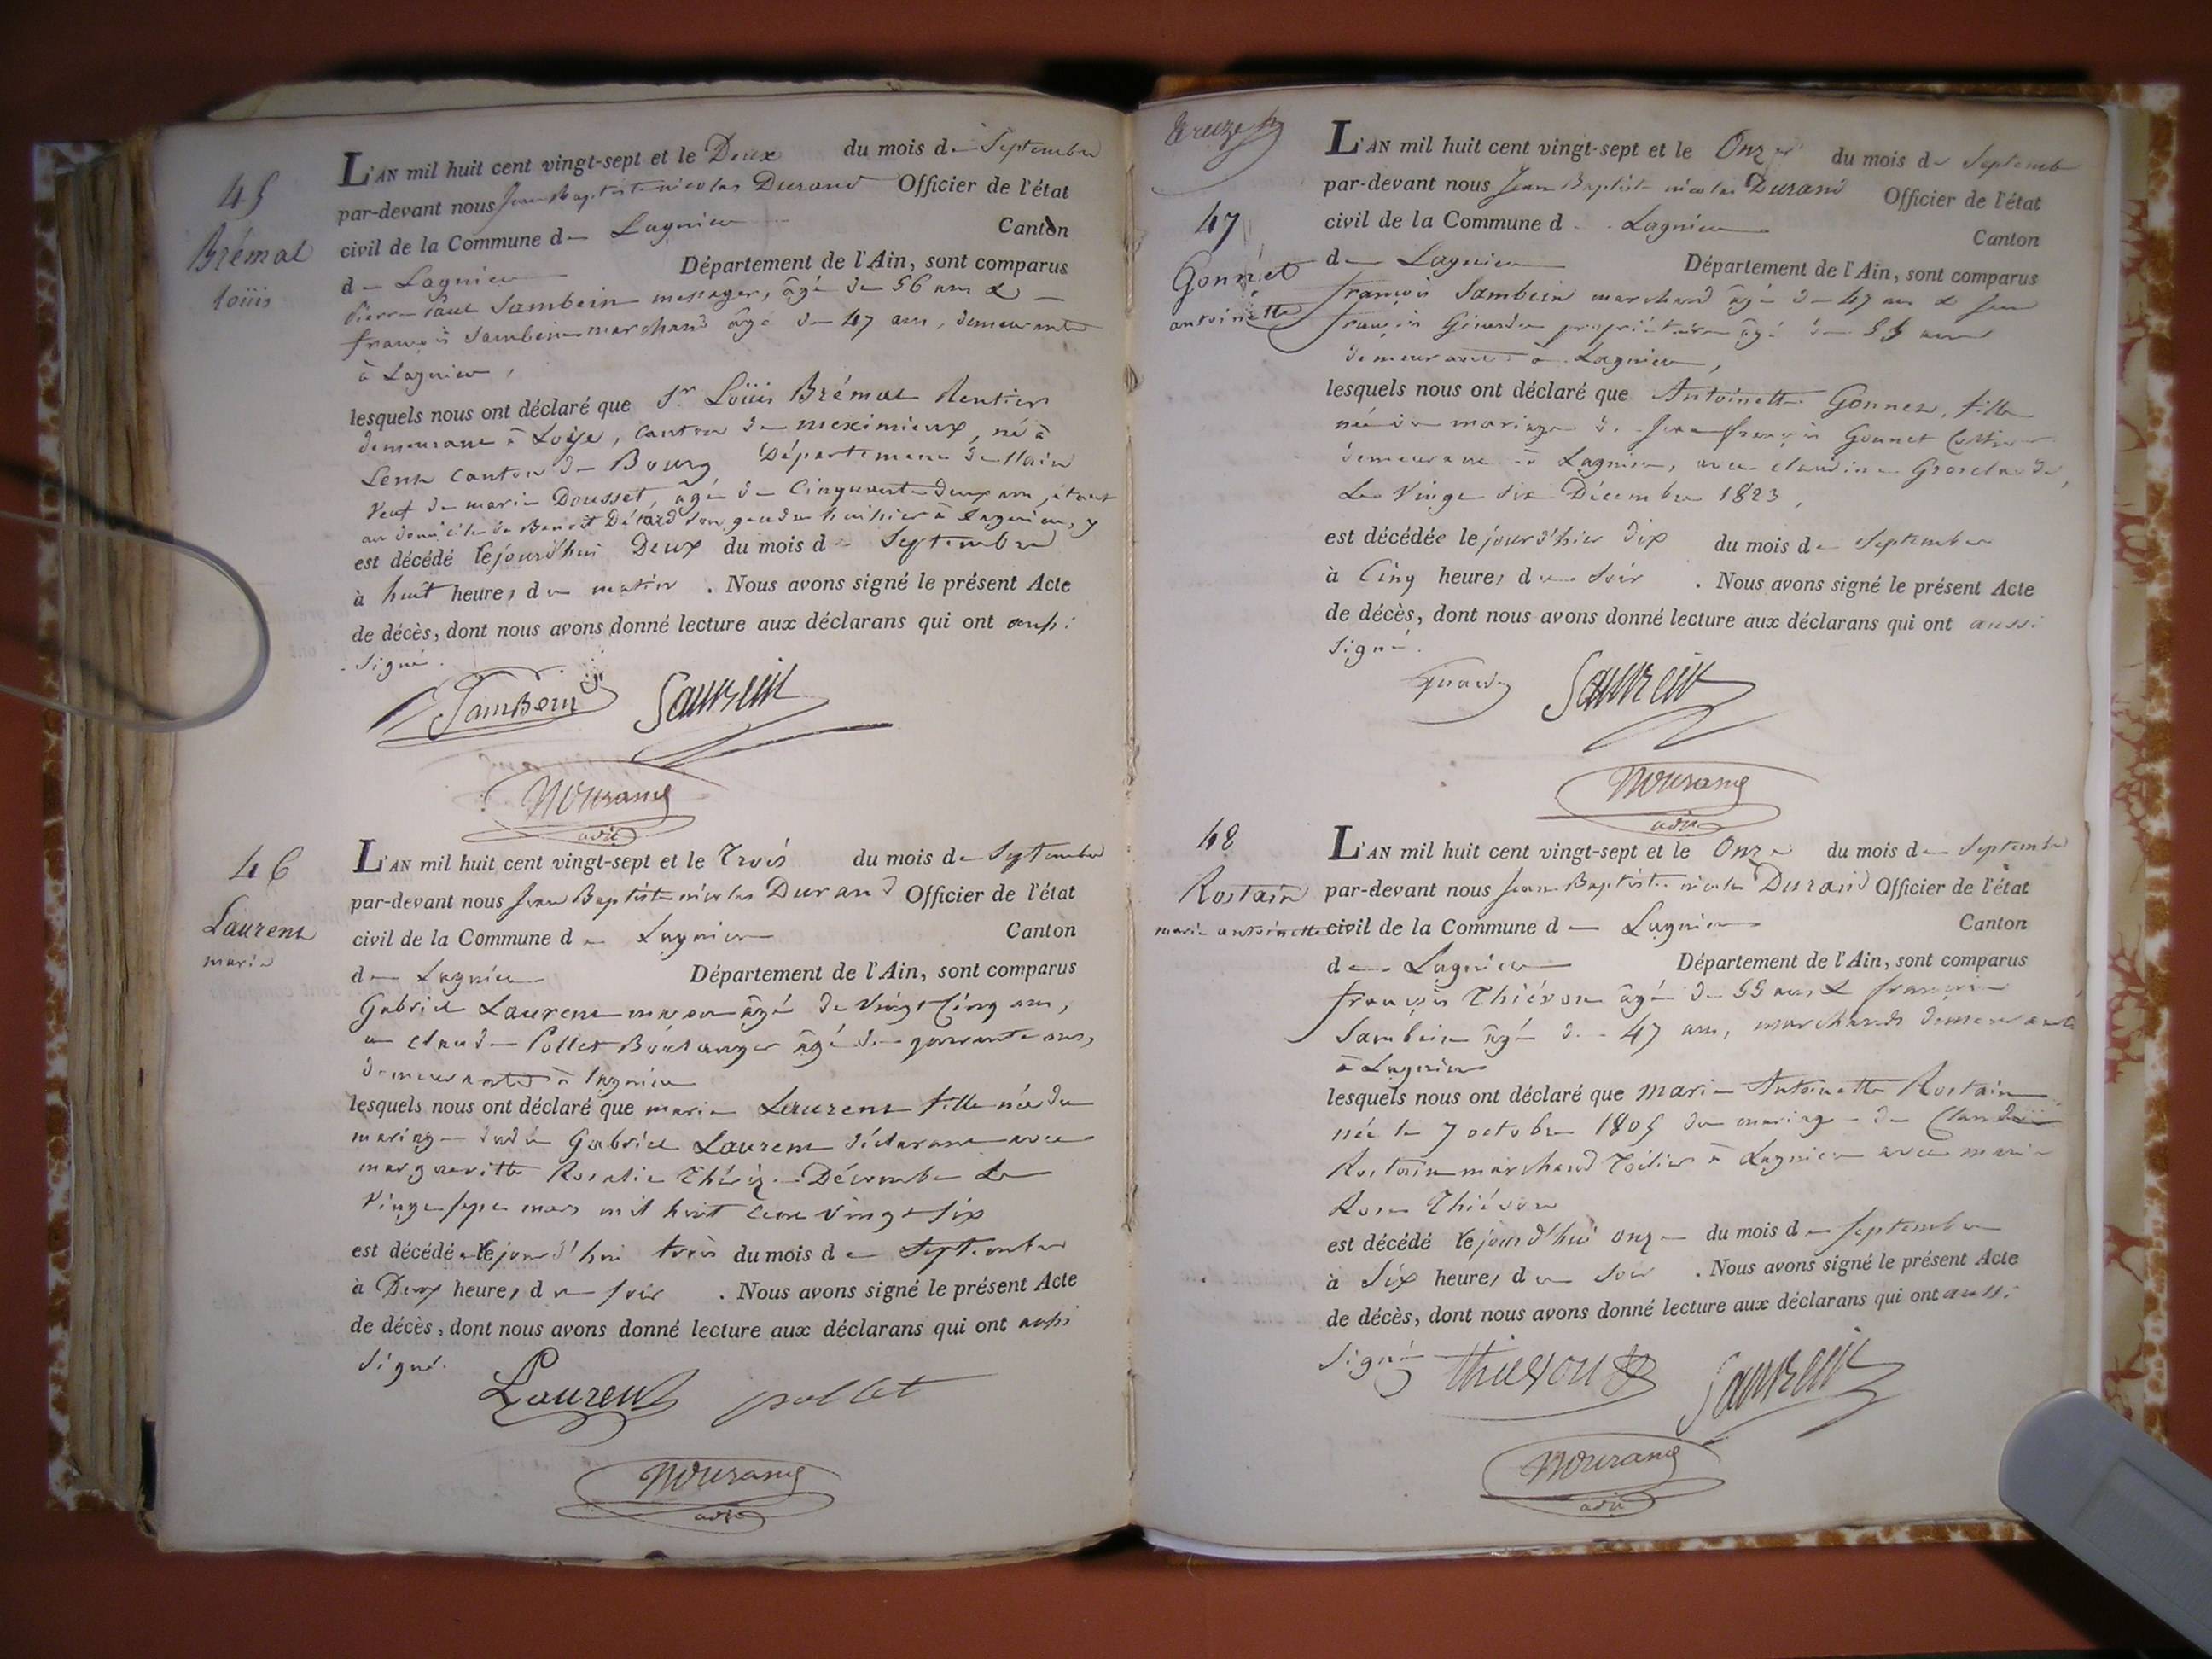 45
Brémal
loüis
L'AN mil huit cent vingt-sept et le Deux du mois de Septembre
par-devant nous Jean Baptiste nicolas Durand Officier de l'état
civil de la Commune de Lagnieu Canton
de Lagnieu Département de l'Ain, sont comparus
Pierre Paul Sambein messager, âgé de 56 ans &
françois Sambein marchand âgé de 47 ans, demeurants
à Lagnieu,
lesquels nous ont déclaré que Sr Loüis Brémal Rentier
demeurant à Loye, canton de meximieux, né à
Lent canton de Bourg Département de l'ain
veuf de marie Dousset, âgé de Cinquante deux ans, étant
au domicile de Benoit son gendre huissier à Lagnieu, y
est décédé lejourd'hui Deux du mois de Septembre
à huit heures du matin . Nous avons signé le présent Acte
de décès, dont nous avons donné lecture aux déclarans qui ont aussi
signé.
Sambein Sambein
Durand
adjt
46
Laurent
marie
L'AN mil huit cent vingt-sept et le Trois du mois de Septembre
par-devant nous Jean Baptiste nicolas Durand Officier de l'état
civil de la Commune de Lagnieu Canton
de Lagnieu Département de l'Ain, sont comparus
Gabriel Laurent maçon âgé de vingt Cinq ans,
et claude Pollet Boulanger âgé de quarante ans,
demeurants à lagnieu
lesquels nous ont déclaré que marie Laurent fille née du
mariage dudit Gabriel Laurent déclarant avec
margueritte Rosalie Thérèze Décombe le
vingt sept mars mil huit cent vingt six
est décédée lejourd'hui trois du mois de Septembre
à Deux heures du soir . Nous avons signé le présent Acte
de décès, dont nous avons donné lecture aux déclarans qui ont aussi
signé.
Laurent pollet
Durand
adjt
47
Gonnet
antoinette
L'AN mil huit cent vingt-sept et le Onze du mois de Septembre
par-devant nous Jean Baptiste nicolas Durand Officier de l'état
civil de la Commune d Lagnieu Canton
de Lagnieu Département de l'Ain, sont comparus
françois Sambein marchand âgé de 47 ans & Jean
françois Girardin propriétaire âgé de 55 ans
demeurants à Lagnieu,
lesquels nous ont déclaré que Antoinette Gonnet, fille
née du mariage de Jean françois Gonnet
demeurant à Lagnieu, avec claudine Grosclaude,
Le Vingt six Décembre 1823,
est décédée lejourd'hier dix du mois de Septembre
à Cinq heures du soir . Nous avons signé le présent Acte
de décès, dont nous avons donné lecture aux déclarans qui ont aussi
signé.
Sambein
Durand
adjt
48
Rostain
marie antoinette
L'AN mil huit cent vingt-sept et le Onze du mois de Septembre
par-devant nous Jean Baptiste nicolas Durand Officier de l'état
civil de la Commune de Lagnieu Canton
de Lagnieu Département de l'Ain, sont comparus
françois Thiévon âgé de 55 ans & françois
Sambein âgé de 47 ans, marchands demeurants
à Lagnieu
lesquels nous ont déclaré que marie Antoinette Rostain
née le 7 octobre 1805 du mariage de Claude
Rostain marchand Toilier à Lagnieu avec marie
Rose Thiévon
est décédé lejourd'hui onze du mois de septembre
à Six heures du soir . Nous avons signé le présent Acte
de décès, dont nous avons donné lecture aux déclarans qui ont aussi
signé
thievon Sambein
Durand
adjt